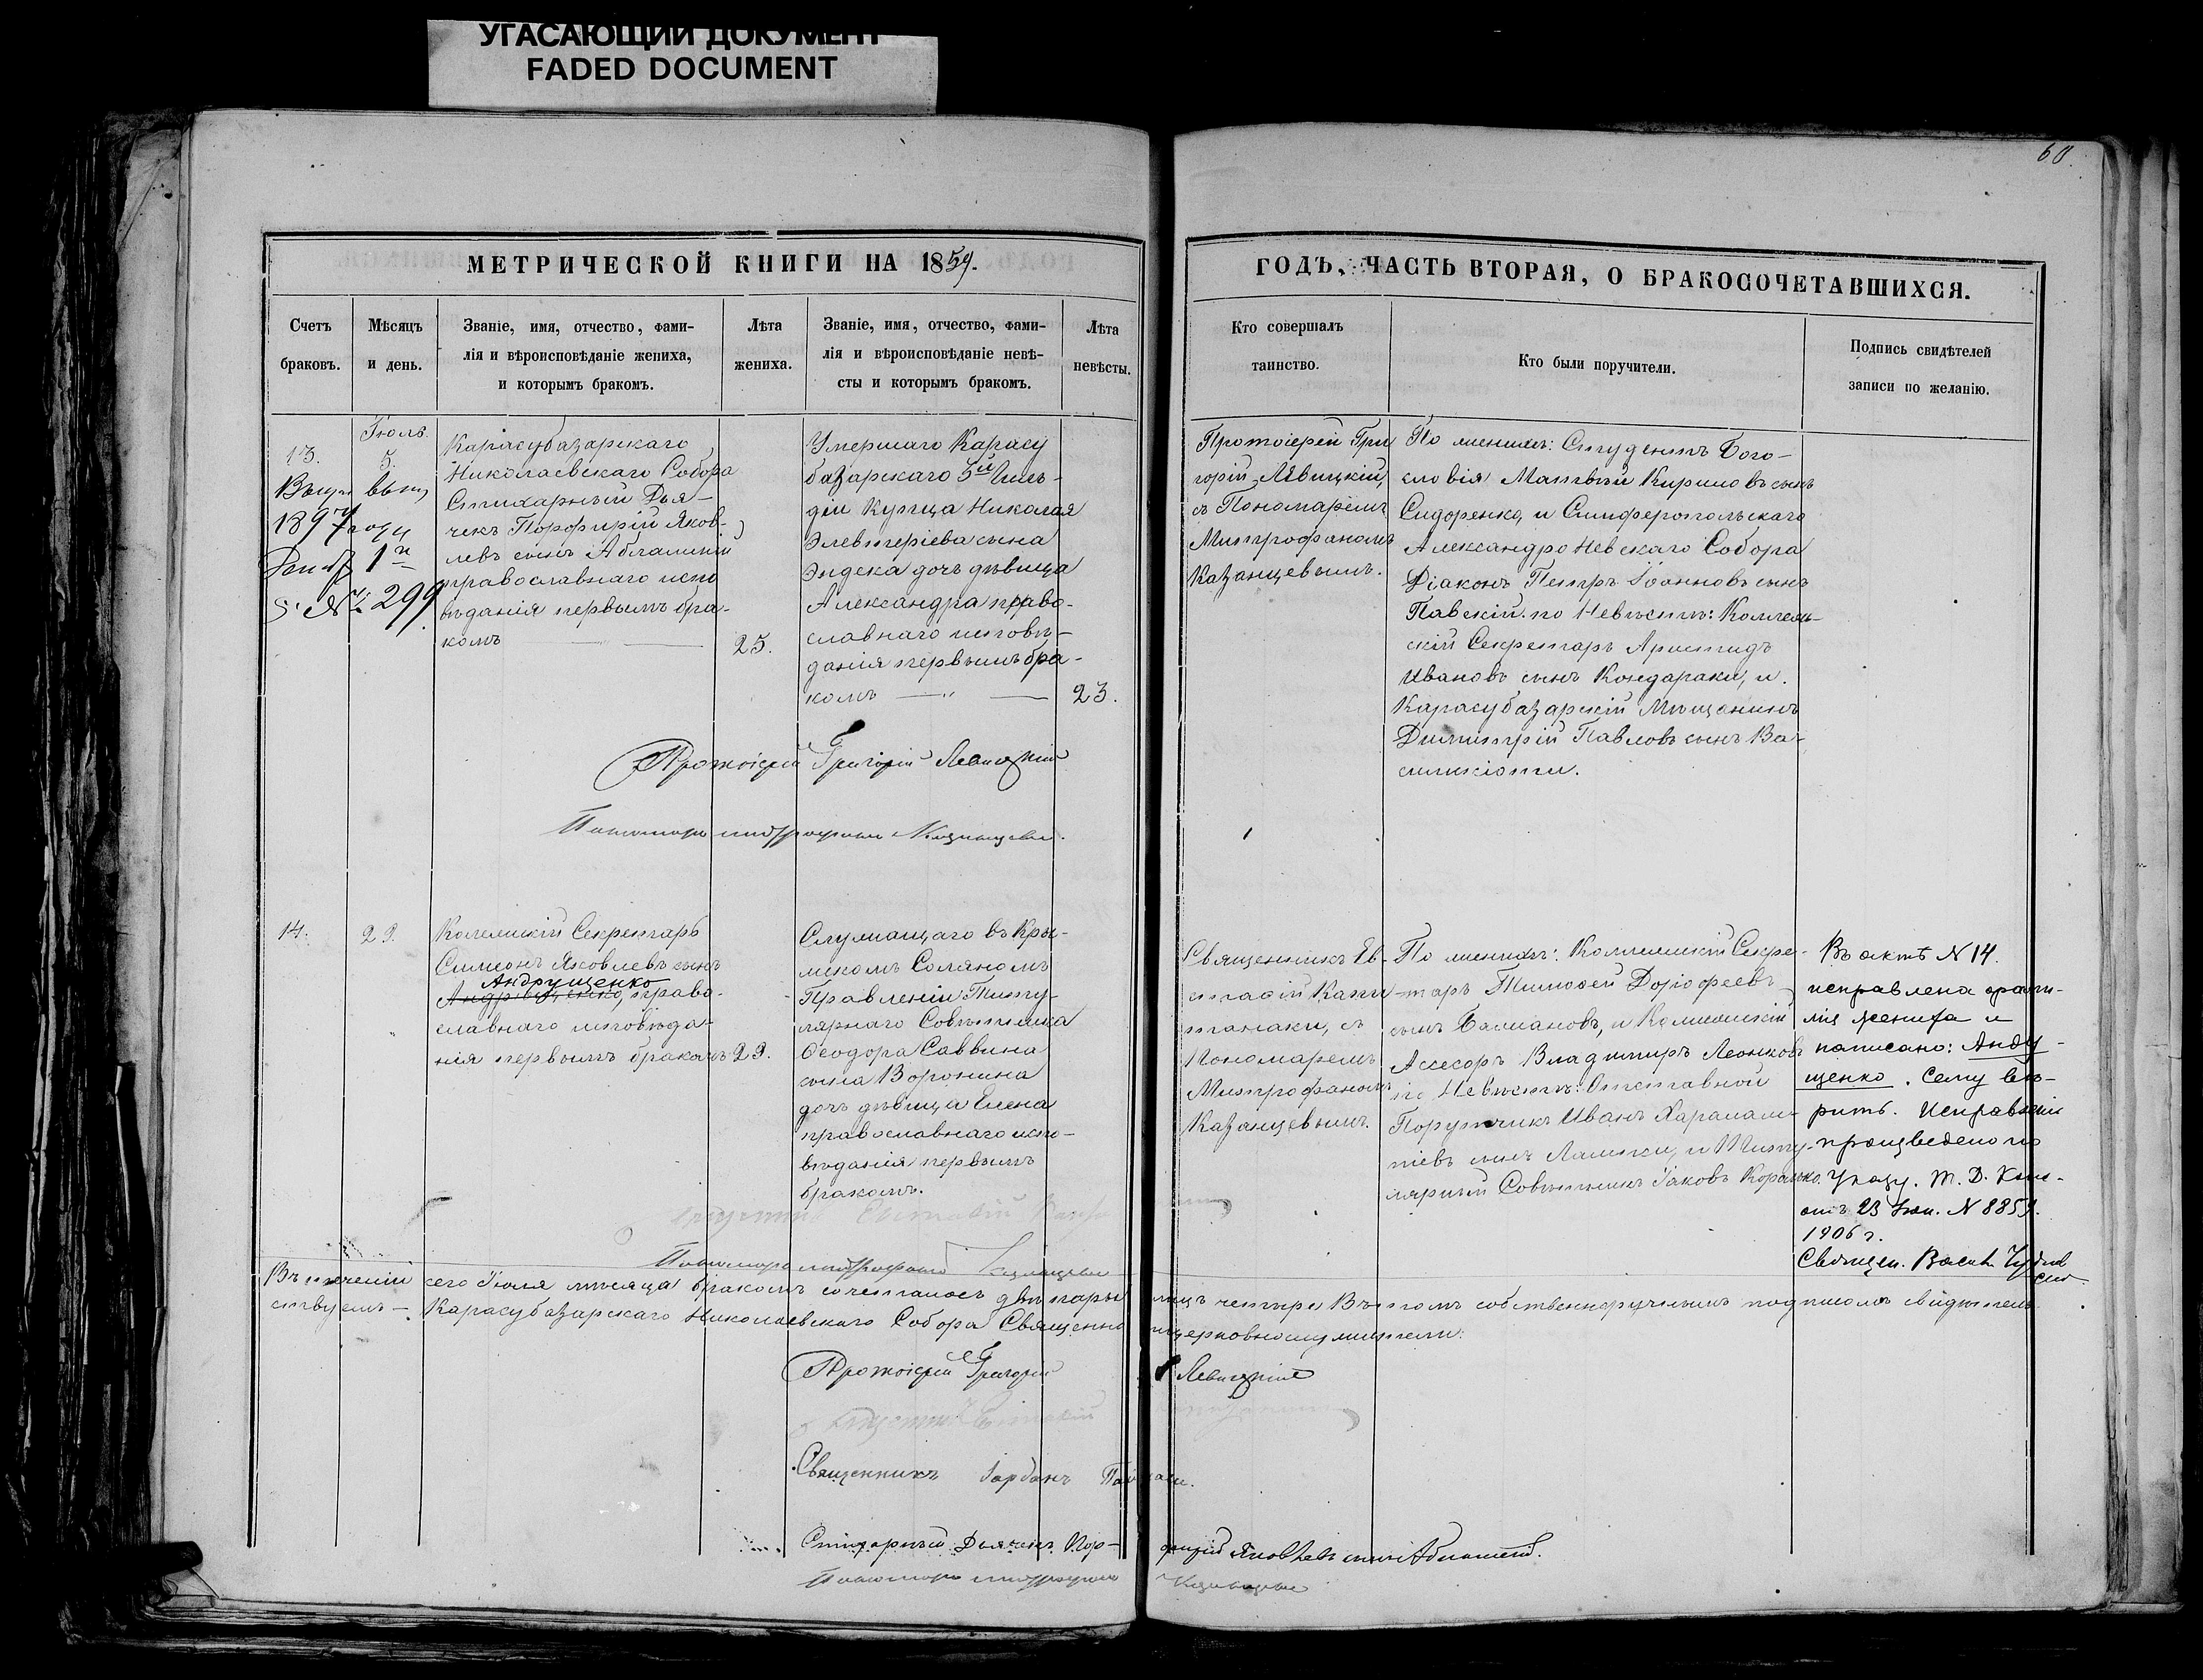 УГАСАЮЩИЙ ДОКУМЕНТ
FADED DOCUMENT
60.
МЕТРИЧЕСКОЙ КНИГИ НА 1859.
ГОДЪ, ЧАСТЬ ВТОРАЯ, О БРАКОСОЧЕТАВШИХСЯ.
Счетъ
браковъ.
Мѣсяцъ
и день.
Званіе, имя, отчество, фами-
лія и вѣроисповѣданіе жениха,
и которымъ бракомъ.
Лѣта
жениха.
Званіе, имя, отчество, фами-
лія и вѣроисповѣданіе невѣ-
сты и которымъ бракомъ.
Лѣта
невѣсты.
Кто совершалъ
таинство.
Кто были поручители.
Подпись свидѣтелей
записи по желанію.
13.
1897 году
1
№ 299
Іюль
5.
Карасубазарскаго
Николаевскаго Собора
Стихарный Дья-
чекъ Порфирій Яков-
левъ сынъ
православнаго испо
вѣданія первымъ бра-
комъ
25.
Умершаго Карасу
базарскаго 3й Гиль-
діи Купца Николая
Элевтеріева сына
Эндека дочь дѣвица
Александра право-
славнаго исповѣ-
данія первымъ бра-
комъ
23.
Протоіерей Гри
горій Левицкій,
съ Пономаремъ
Митрофаномъ
Казанцевымъ.
По женихѣ: Студентъ Бого-
словія Матвѣй Кириловъ сынъ
Сидоренко, и Симферопольскаго
Александро Невскаго Собора
Діаконъ Петръ Іоанновъ сынъ
Павскій. по Невѣстѣ: Коллеж-
скій Секретарь Аристидъ
Ивановъ сынъ Кондараки, и
Карасубазарскій Мѣщанинъ
Димитрій Павловъ сынъ Ва-
силькіоти.
Протоіерей Григорій Левицкій
Пономарь Митрофанъ Казанцевъ.
14.
29.
Колежскій Секретарь
Симеонъ Яковлевъ сынъ
Андрущенко
православнаго исповѣда-
нія первымъ бракомъ
29.
Служащаго въ Кры-
мскомъ Соляномъ
Правленіи Титу-
лярнаго Совѣтника
Ѳеодора Саввина
сына Воронина
дочь дѣвица Елена
православнаго испо-
вѣданія первымъ
бракомъ.
Священникъ Ев-
стафій Капи
танаки, съ
Пономаремъ
Митрофаномъ
Казанцевымъ.
По женихѣ: Коллежскій Секре-
тарь Тимоѳей Дороѳеевъ
сынъ Балтановъ, и Колежскій
Ассесоръ Владимиръ Леонковъ
по Невѣстѣ: Отставной
Порутчикъ Иванъ Харалам-
піевъ сынъ и Титу-
лярный Совѣтникъ Іаковъ
Въ актѣ № 14.
исправлена фами-
лія жениха и
написано: Анду-
щенко. Сему вѣ-
рить. Исправленіе
произведено по
Указу. Т. Д. Кон-
отъ 23 № 8859.
1906 г.
Священ. Васил.
Пономарь Митрофанъ Казанцевъ
Въ теченіи сего Іюля мѣсяца бракомъ сочеталось двѣ пары лицъ четыре Въ томъ собственноручнымъ подписомъ свидѣтель-
ствуемъ – Карасубазарскаго Николаевскаго Собора Священно церковнослужители:
Протоіерей Григорій Левицкій
Священникъ Іорданъ
Стихарный Дьячекъ Пор-фирій Яковлевъ сынъ
Пономарь Митрофанъ Казанцевъ